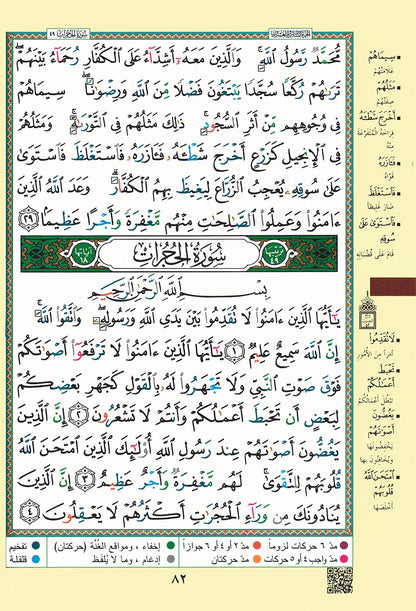 سُورَةُ الحُجُرَاتِ ٤٩
مُّحَمَّدٌ رَّسُولُ ٱللَّهِ ۚ وَٱلَّذِينَ مَعَهُۥٓ أَشِدَّآءُ عَلَى ٱلْكُفَّارِ رُحَمَآءُ بَيْنَهُمْ ۖ
تَرَىٰهُمْ رُكَّعًا سُجَّدًا يَبْتَغُونَ فَضْلًا مِّنَ ٱللَّهِ وَرِضْوَٰنًا ۖ سِيمَاهُمْ
فِى وُجُوهِهِم مِّنْ أَثَرِ ٱلسُّجُودِ ۚ ذَٰلِكَ مَثَلُهُمْ فِى ٱلتَّوْرَىٰةِ ۚ وَمَثَلُهُمْ
فِى ٱلْإِنجِيلِ كَزَرْعٍ أَخْرَجَ شَطْـَٔهُۥ فَـَٔازَرَهُۥ فَٱسْتَغْلَظَ فَٱسْتَوَىٰ
عَلَىٰ سُوقِهِۦ يُعْجِبُ ٱلزُّرَّاعَ لِيَغِيظَ بِهِمُ ٱلْكُفَّارَ ۗ وَعَدَ ٱللَّهُ ٱلَّذِينَ
ءَامَنُوا۟ وَعَمِلُوا۟ ٱلصَّٰلِحَٰتِ مِنْهُم مَّغْفِرَةً وَأَجْرًا عَظِيمًۢا ٢٩
ترتيبها ٤٩ سُورَةُ الحُجُرَاتِ آياتها ١٨
بِسْمِ ٱللَّهِ ٱلرَّحْمَٰنِ ٱلرَّحِيمِ
يَٰٓأَيُّهَا ٱلَّذِينَ ءَامَنُوا۟ لَا تُقَدِّمُوا۟ بَيْنَ يَدَىِ ٱللَّهِ وَرَسُولِهِۦ ۖ وَٱتَّقُوا۟ ٱللَّهَ ۚ
إِنَّ ٱللَّهَ سَمِيعٌ عَلِيمٌ ١ يَٰٓأَيُّهَا ٱلَّذِينَ ءَامَنُوا۟ لَا تَرْفَعُوٓا۟ أَصْوَٰتَكُمْ
فَوْقَ صَوْتِ ٱلنَّبِىِّ وَلَا تَجْهَرُوا۟ لَهُۥ بِٱلْقَوْلِ كَجَهْرِ بَعْضِكُمْ
لِبَعْضٍ أَن تَحْبَطَ أَعْمَٰلُكُمْ وَأَنتُمْ لَا تَشْعُرُونَ ٢ إِنَّ ٱلَّذِينَ
يَغُضُّونَ أَصْوَٰتَهُمْ عِندَ رَسُولِ ٱللَّهِ أُو۟لَٰٓئِكَ ٱلَّذِينَ ٱمْتَحَنَ ٱللَّهُ
قُلُوبَهُمْ لِلتَّقْوَىٰ ۚ لَهُم مَّغْفِرَةٌ وَأَجْرٌ عَظِيمٌ ٣ إِنَّ ٱلَّذِينَ
يُنَادُونَكَ مِن وَرَآءِ ٱلْحُجُرَٰتِ أَكْثَرُهُمْ لَا يَعْقِلُونَ ٤
سِيمَاهُمْ
علامتُهُمْ
مَثَلُهُمْ
صفتُهُمْ
أَخْرَجَ شَطْـَٔهُ
فراخَهُ المتفرّعة
منه
فَـَٔازَرَهُ
قوّاه
فَٱسْتَغْلَظَ
صار غليظاً
فَٱسْتَوَىٰ عَلَىٰ
سُوقِهِ
قام على قُضْبَانِهِ
لَا تُقَدِّمُوا
أمراً من الأمور
تَحْبَطَ
أَعْمَٰلُكُمْ
تبطُل أعمالُكُمْ
يَغُضُّونَ
أَصْوَٰتَهُمْ
يخفضونها
ويُخافتون بها
ٱمْتَحَنَ ٱللَّهُ
قُلُوبَهُمْ
أخلصَها
مدّ ٦ حركات لزوماً مدّ ٢ أو ٤ أو ٦ جوازاً إخفاء، ومواقع الغُنَّة (حركتان) تفخيم
مدّ واجب ٤ أو ٥ حركات مدّ حركتان إدغام، وما لا يُلفَظ قلقلة
٨٢